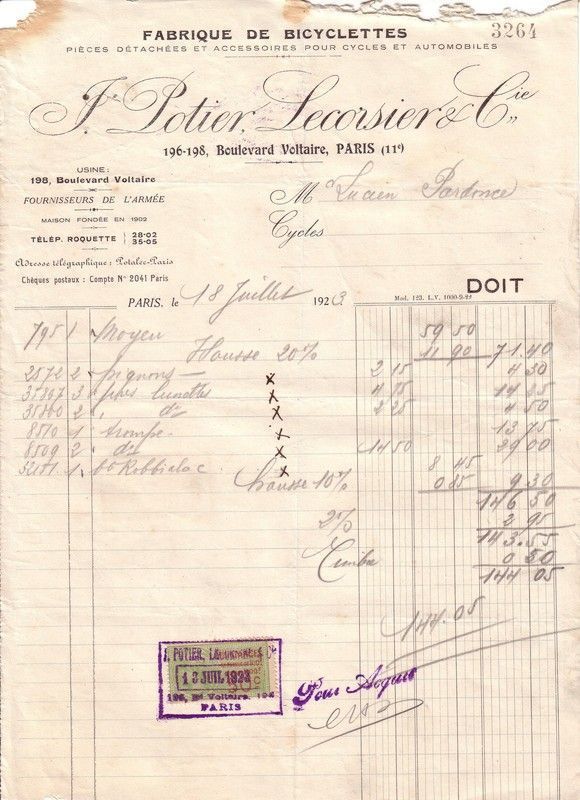 FABRIQUE DE BICYCLETTES
3264
PIÈCES DÉTACHÉES ET ACCESSOIRES POUR CYCLES ET AUTOMOBILES
J. Potier, Lecorsier & Cie
196-198, Boulevard Voltaire, PARIS (11e)
USINE:
198, Boulevard Voltaire
FOURNISSEURS DE L'ARMÉE
MAISON FONDÉE EN 1902
TÉLÉP. ROQUETTE 28-02
35-05
Adresse télégraphique: Potalec-Paris
Chèques postaux: Compte N° 2041 Paris
M Lucien
Cycles
DOIT
PARIS, le 18 Juillet 1923
Mod. 123. L.V.
7951 Moyeu 59 50
Hausse 20% 11 90 71.40
2572 2 pignons 2 15 4 30
3 lunettes 4 75 14 25
2 " d° 2 25 4 50
8510 1 trompe 13 75
8509 2 d° 14 50 29 00
1 Robbialac 8 45
hausse 10% 0 85 9 30
146 50
2% 2 95
143.55
Timbre 0 50
144 05
144.05
J. POTIER, LECORSIER & Cie
18 JUIL 1923
196, Bd Voltaire, 198
PARIS
Pour Acquit